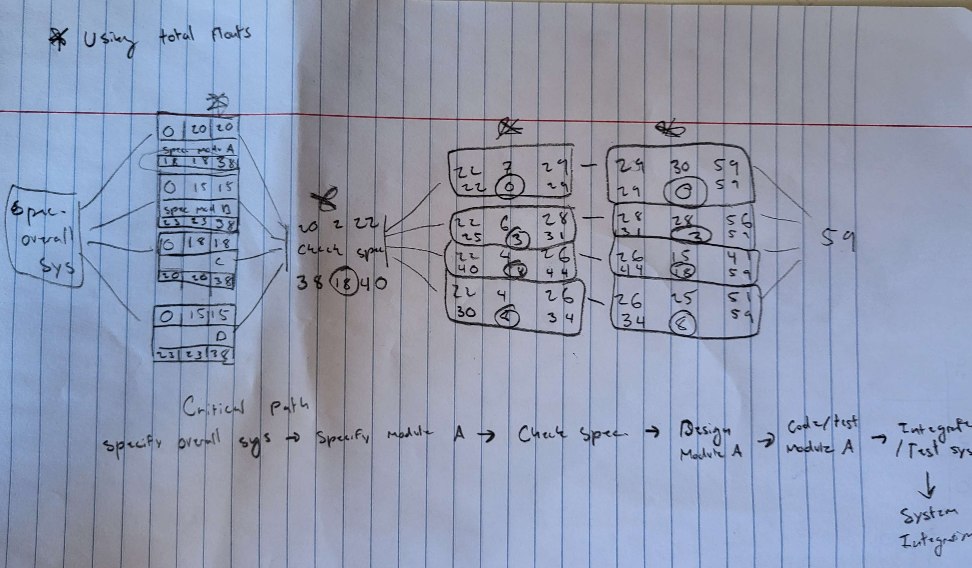 * Using total floats
*
0 20 20
spec modu A
18 18 38
0 15 15
spec mod B
23 23 38
0 18 18
C
20 20 38
0 15 15
D
23 23 38
Spec.
overall
sys
*
20 2 22
Check spec
38 18 40
*
22 7 29
22 0 29
22 6 28
25 3 31
22 4 26
40 18 44
22 4 26
30 8 34
*
29 30 59
29 0 59
28 28 56
31 3 59
26 15 41
44 18 59
26 25 51
34 8 59
59
Critical path
specify overall sys → Specify module A → Check Spec → Design Module A → Code/test Module A → Integrate /Test sys
↓
System
Integration